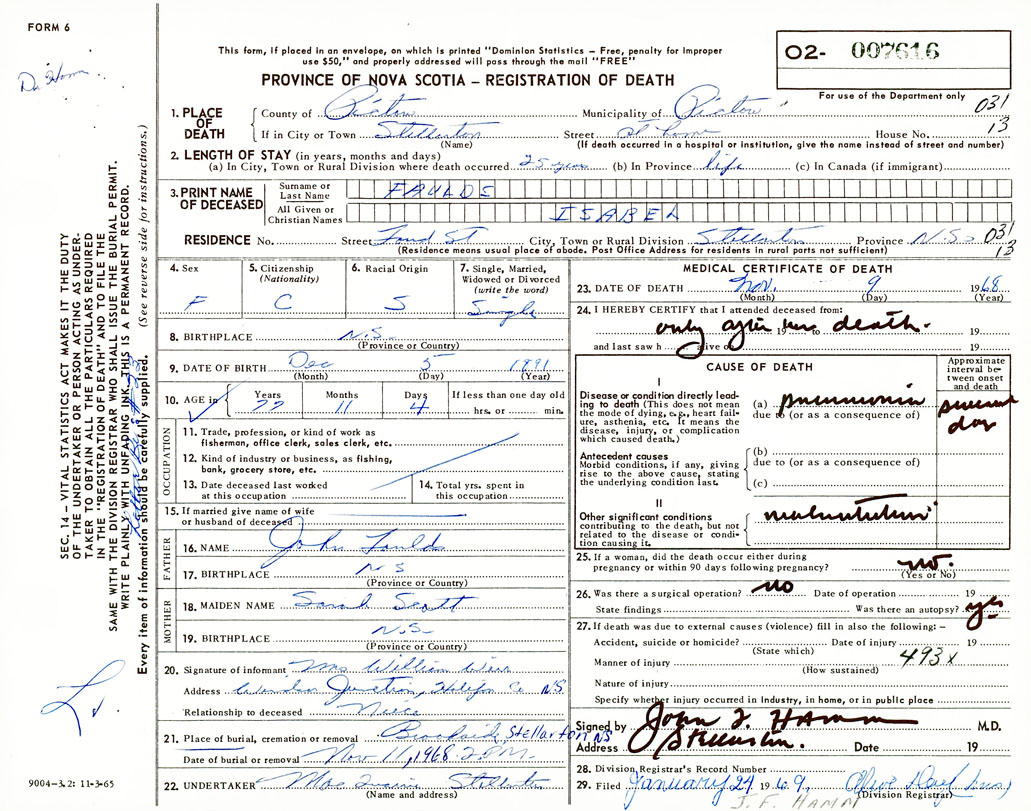 FORM 6
Dr. Hamm
This form, if placed in an envelope, on which is printed "Dominion Statistics – Free, penalty for improper
use $50," and properly addressed will pass through the mail "FREE"
PROVINCE OF NOVA SCOTIA – REGISTRATION OF DEATH
O2- 007616
For use of the Department only
031
13
1. PLACE OF DEATH County of Pictou Municipality of Pictou
If in City or Town Stellarton Street at home House No.
(Name) (If death occurred in a hospital or institution, give the name instead of street and number)
2. LENGTH OF STAY (in years, months and days)
(a) In City, Town or Rural Division where death occurred 25 years (b) In Province life (c) In Canada (if immigrant)
3. PRINT NAME OF DECEASED Surname or Last Name FAULDS
All Given or Christian Names ISABEL
RESIDENCE No. Street Foord St City, Town or Rural Division Stellarton Province N.S. 031
(Residence means usual place of abode. Post Office Address for residents in rural parts not sufficient) 13
4. Sex F
5. Citizenship (Nationality) C
6. Racial Origin S
7. Single, Married, Widowed or Divorced (write the word) Single
8. BIRTHPLACE N.S.
(Province or Country)
9. DATE OF BIRTH Dec 5 1891
(Month) (Day) (Year)
10. AGE in Years Months Days If less than one day old
11 4 hrs. or min.
OCCUPATION
11. Trade, profession, or kind of work as
fisherman, office clerk, sales clerk, etc.
12. Kind of industry or business, as fishing,
bank, grocery store, etc.
13. Date deceased last worked
at this occupation
14. Total yrs. spent in
this occupation
15. If married give name of wife
or husband of deceased
FATHER
16. NAME John Faulds
17. BIRTHPLACE N S
(Province or Country)
MOTHER
18. MAIDEN NAME Sarah Scott
19. BIRTHPLACE N.S.
(Province or Country)
20. Signature of informant Mrs William
Address Windsor Junction, Halifax Co NS
Relationship to deceased Niece
21. Place of burial, cremation or removal Brookside, Stellarton NS
Date of burial or removal Nov 11, 1968 2 P.M.
22. UNDERTAKER Stellarton
(Name and address)
MEDICAL CERTIFICATE OF DEATH
23. DATE OF DEATH Nov. 9 1968
(Month) (Day) (Year)
24. I HEREBY CERTIFY that I attended deceased from:
only after her death. 19 to 19
and last saw h alive on 19
CAUSE OF DEATH
Approximate interval between onset and death
I
Disease or condition directly leading to death (This does not mean the mode of dying, e.g., heart failure, asthenia, etc. It means the disease, injury, or complication which caused death.)
(a) pneumonia several days
due to (or as a consequence of)
Antecedent causes
Morbid conditions, if any, giving rise to the above cause, stating the underlying condition last.
(b)
due to (or as a consequence of)
(c)
II
Other significant conditions
contributing to the death, but not related to the disease or condition causing it.
malnutrition
25. If a woman, did the death occur either during
pregnancy or within 90 days following pregnancy? no.
(Yes or No)
26. Was there a surgical operation? no Date of operation 19
State findings Was there an autopsy? yes
27. If death was due to external causes (violence) fill in also the following: –
Accident, suicide or homicide? Date of injury 19
(State which)
Manner of injury 493x
(How sustained)
Nature of injury
Specify whether injury occurred in Industry, in home, or in public place
Signed by John F. Hamm M.D.
Address Stellarton. Date 19
28. Division Registrar's Record Number
29. Filed January 24 1969
(Division Registrar)
J. F. HAMM
SEC. 14 – VITAL STATISTICS ACT MAKES IT THE DUTY
OF THE UNDERTAKER OR PERSON ACTING AS UNDER-
TAKER TO OBTAIN ALL THE PARTICULARS REQUIRED
IN THE "REGISTRATION OF DEATH" AND TO FILE THE
SAME WITH THE DIVISION REGISTRAR WHO SHALL ISSUE THE BURIAL PERMIT.
WRITE PLAINLY WITH UNFADING INK. THIS IS A PERMANENT RECORD.
Every item of information should be carefully supplied. (See reverse side for instructions.)
9004-3.2: 11-3-65